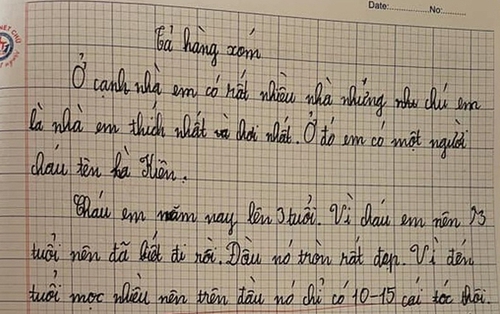 Date: No:
Tả hàng xóm
Ở cạnh nhà em có rất nhiều nhà nhưng nhà chú em
là nhà em thích nhất và chơi nhất. Ở đó em có một người
cháu tên là Kiên.
Cháu em năm nay lên 3 tuổi. Vì cháu em nên 3
tuổi nên đã biết đi rồi. Đầu nó tròn rất đẹp. Vì đến
tuổi mọc nhiều nên trên đầu nó chỉ có 10-15 cái tóc thôi.